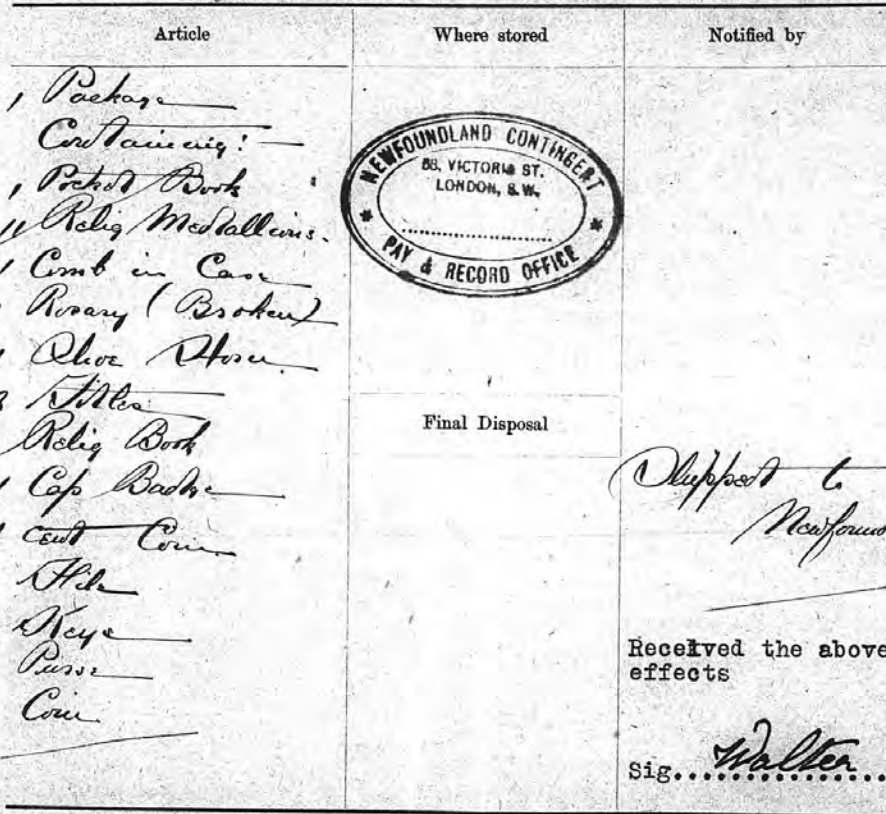 Article
Where stored
Notified by
1 Package
Containing:—
1 Pocket Book
11 Relig Medallions.
1 Comb in Case
Rosary (Broken)
Shoe Horn
3 Titles
Relig Book
1 Cap Badge
1 cent Coin
File
Keys
Purse
Coin
NEWFOUNDLAND CONTINGENT
58, VICTORIA ST.
LONDON, S.W.
PAY & RECORD OFFICE
Final Disposal
Shipped to
Newfoun
Received the above
effects
Sig. Walter